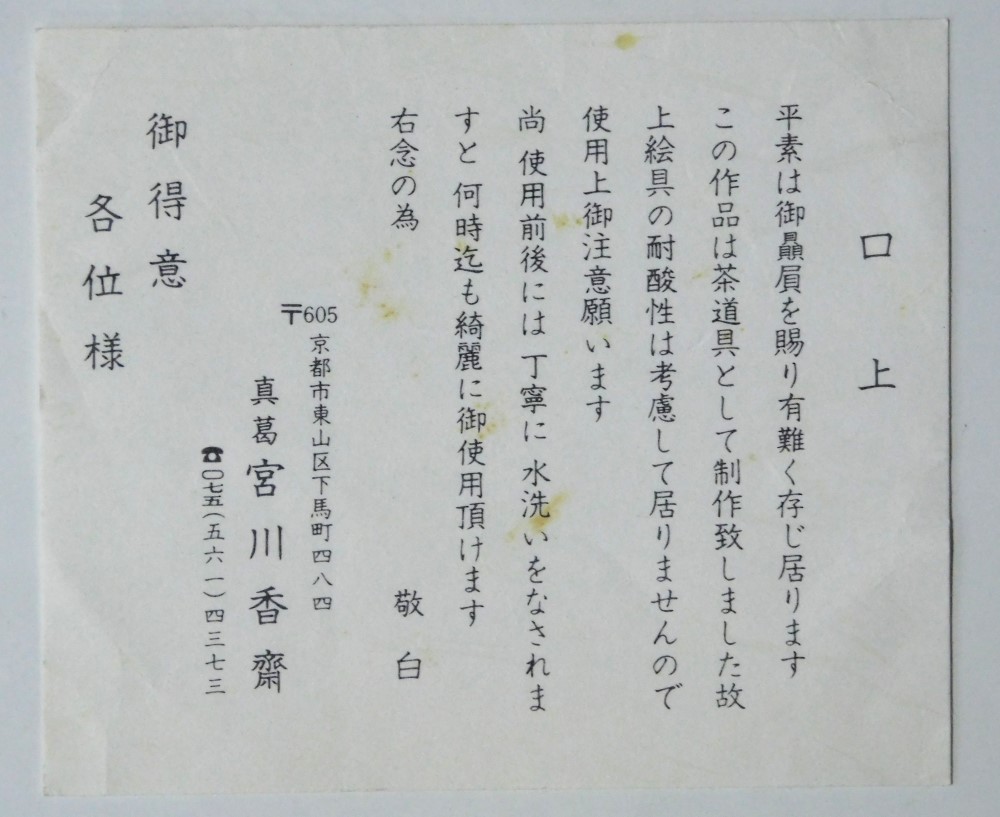 口上
平素は御贔屓を賜り有難く存じ居ります
この作品は茶道具として制作致しました故
上絵具の耐酸性は考慮して居りませんので
使用上御注意願います
尚 使用前後には 丁寧に 水洗いをなされま
すと 何時迄も綺麗に御使用頂けます
右念の為 敬白
〒605
京都市東山区下馬町四八四
真葛 宮川香齋
☎〇七五(五六一)四三七三
御得意
各位様